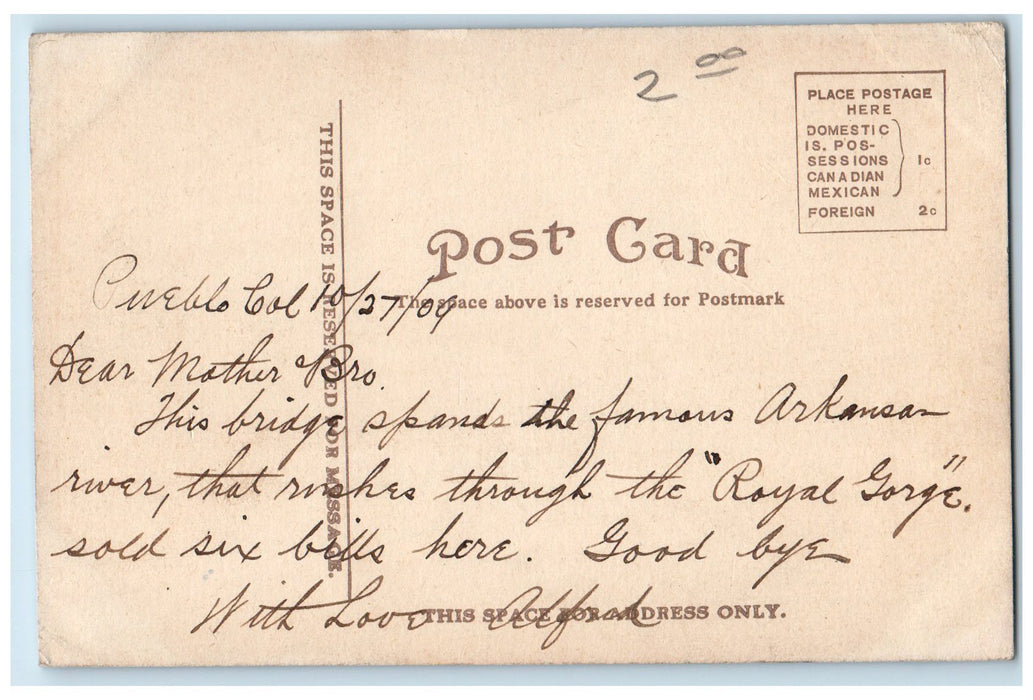 2 00
PLACE POSTAGE
HERE
DOMESTIC
IS. POS-
SESSIONS
CANADIAN
MEXICAN
1c
FOREIGN 2c
THIS SPACE IS RESERVED FOR MESSAGE.
Post Card
The space above is reserved for Postmark
Pueblo Col 10/27/09
Dear Mother & Bro.
This bridge spands the famous Arkansas
river, that rushes through the "Royal Gorge".
sold six bills here. Good bye
With Love Alfred
THIS SPACE FOR ADDRESS ONLY.